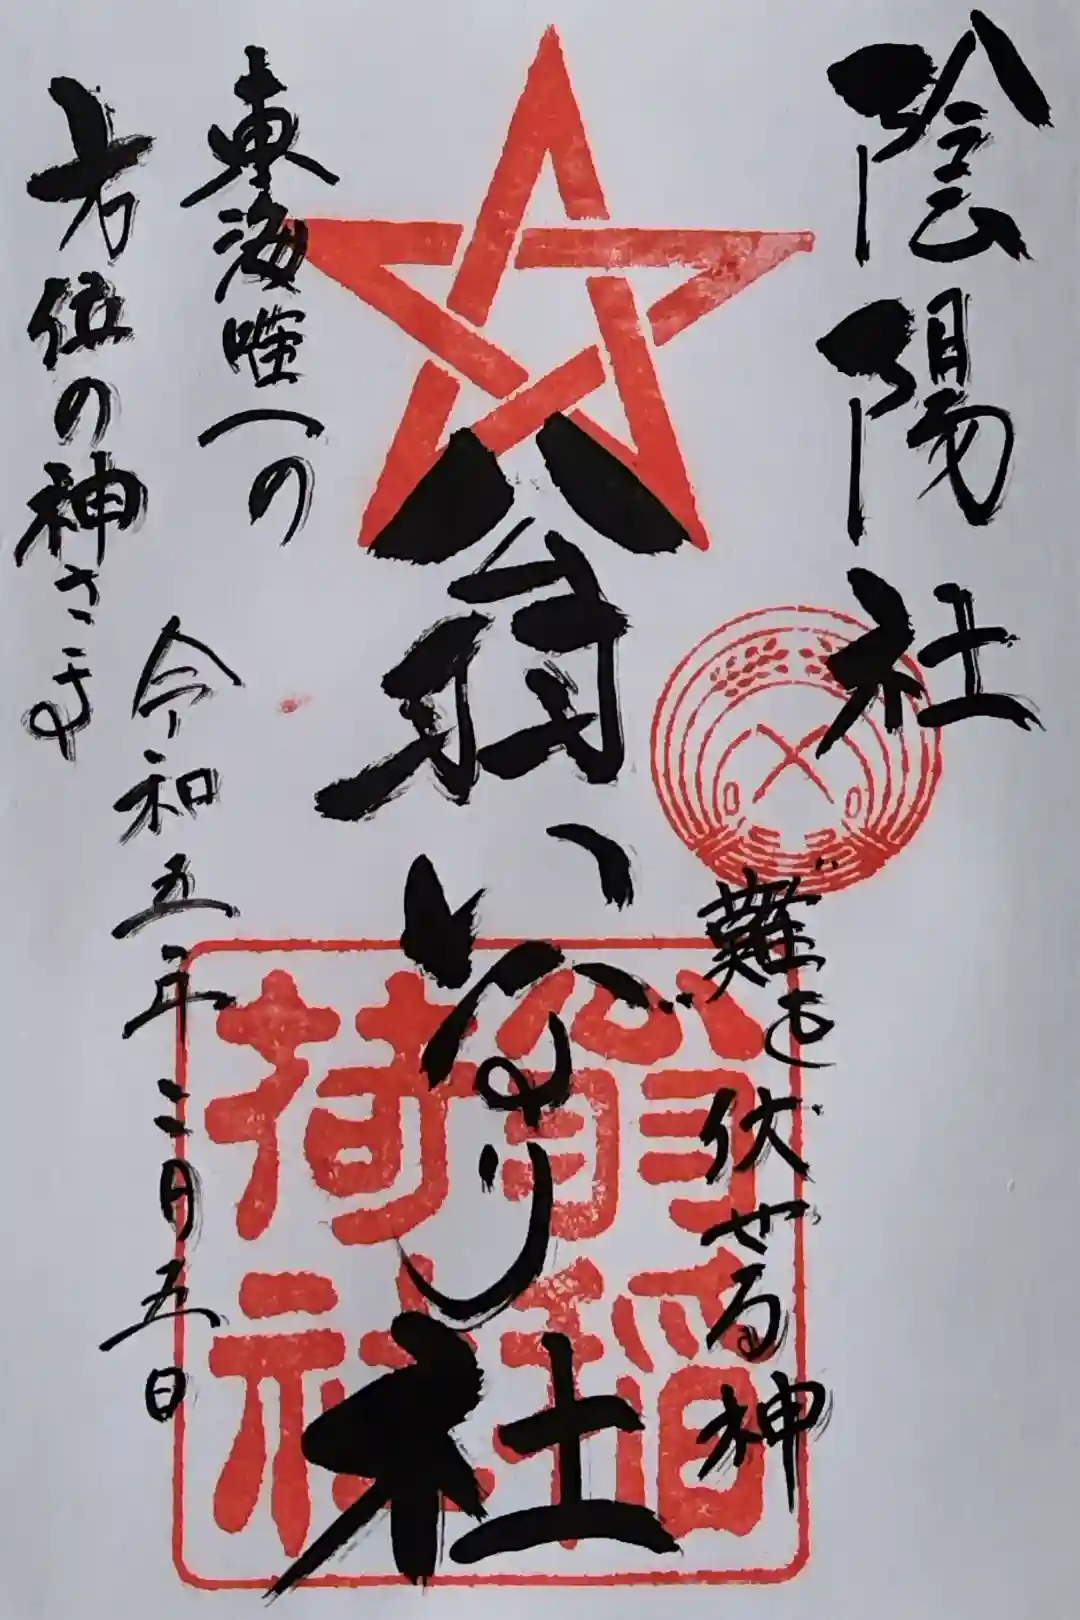 陰陽社
難を伏せる神
翁いなり社
東海唯一の
方位の神さま
令和五年二月五日
翁稲
荷社